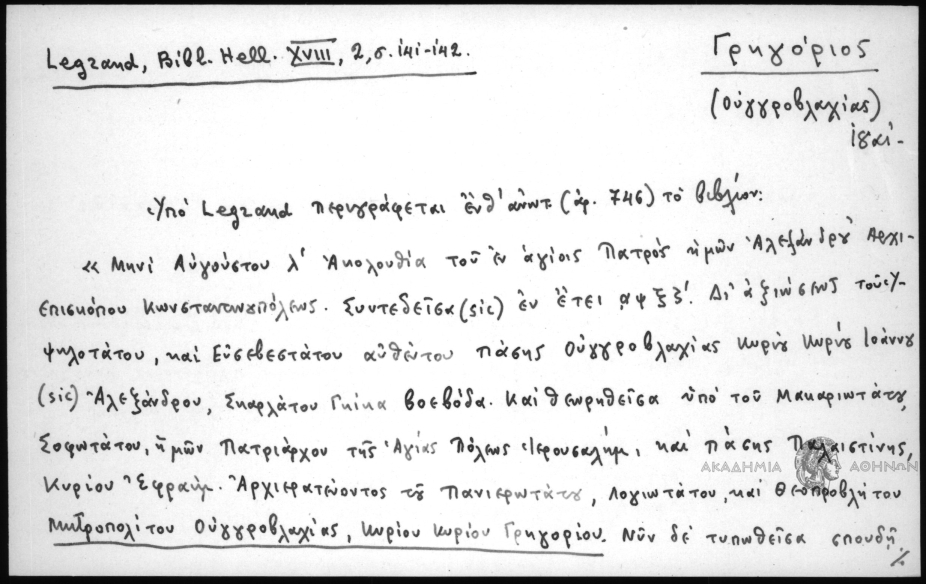 Legrand, Bibl. Hell. XVIII, 2, σ. 141-142.
Γρηγόριος
(Οὐγγροβλαχίας)
ιη΄ αἰ.
Ὑπὸ Legrand περιγράφεται ἐνθ' ἀνωτ. (ἀρ. 746) τὸ βιβλίον:
«Μηνὶ Αὐγούστου λ΄ Ἀκολουθία τοῦ ἐν ἁγίοις Πατρὸς ἡμῶν Ἀλεξάνδρου Ἀρχι-
επισκόπου Κωνσταντινουπόλεως. Συντεδεῖσα (sic) ἐν ἔτει αψξξ΄. Δι' ἀξιώσεως τοῦ Ὑ-
ψηλοτάτου, καὶ Εὐσεβεστάτου αὐθέντου πάσης Οὐγγροβλαχίας Κυρίου Κυρίου Ἰοάννου
(sic) Ἀλεξάνδρου, Σκαρλάτου Γκίκα βοεβόδα. Καὶ θεωρηθεῖσα ὑπὸ τοῦ Μακαριωτάτου,
Σοφωτάτου, ἡμῶν Πατριάρχου τῆς Ἁγίας Πόλεως Ἱερουσαλήμ, καὶ πάσης Παλαιστίνης,
Κυρίου Ἐφραίμ. Ἀρχιερατεύοντος τοῦ Πανιερωτάτου, Λογιωτάτου, καὶ Θεοπροβλήτου
Μητροπολίτου Οὐγγροβλαχίας, Κυρίου Κυρίου Γρηγορίου. Νῦν δὲ τυπωθεῖσα σπουδῇ
./.
ΑΚΑΔΗΜΙΑ ΑΘΗΝΩΝ